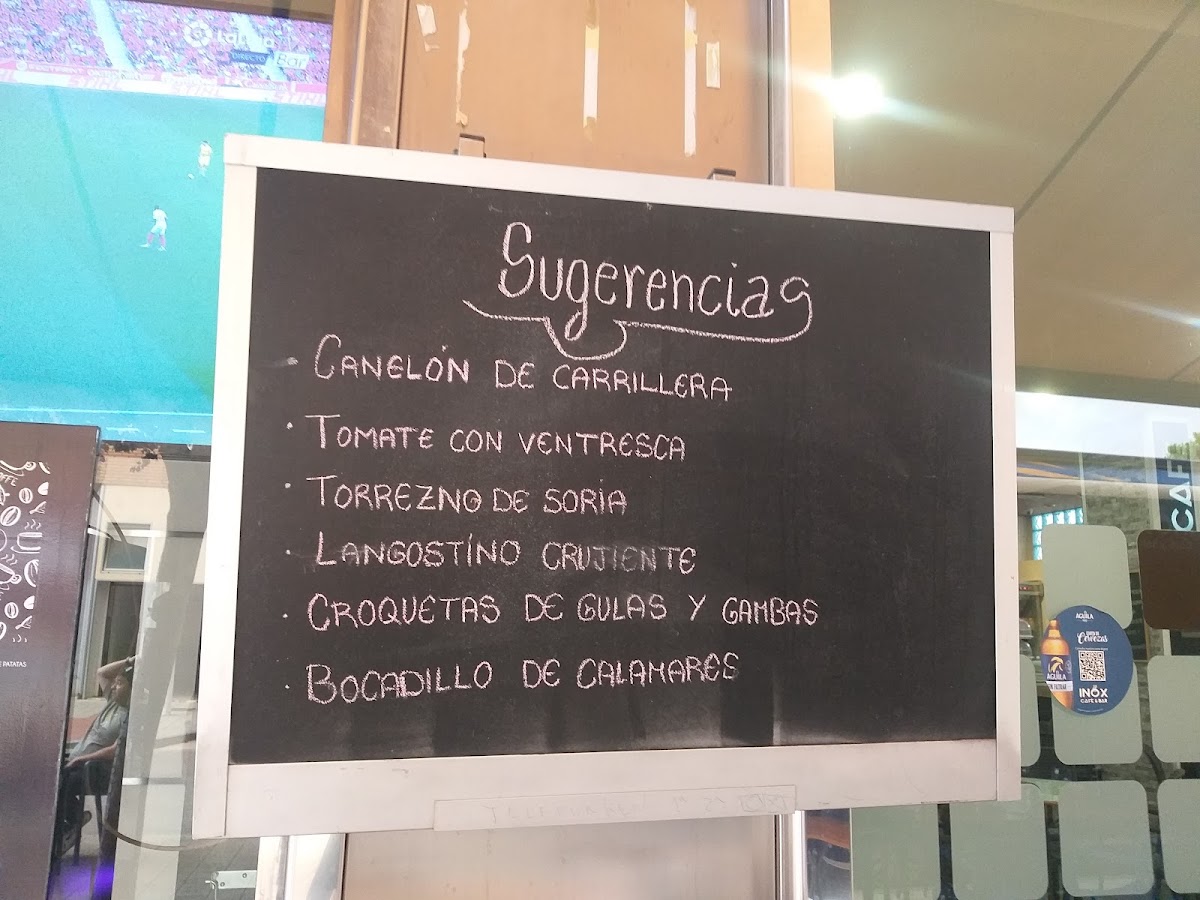 LaLiga
DIRECTO Bar
STIHL
Sugerencias
· CANELÓN DE CARRILLERA
· TOMATE CON VENTRESCA
· TORREZNO DE SORIA
· LANGOSTINO CRUJIENTE
· CROQUETAS DE GULAS Y GAMBAS
· BOCADILLO DE CALAMARES
PATATAS
CAF
AGUILA
Cervezas
AGUILA
INOX
CAFÉ & BAR